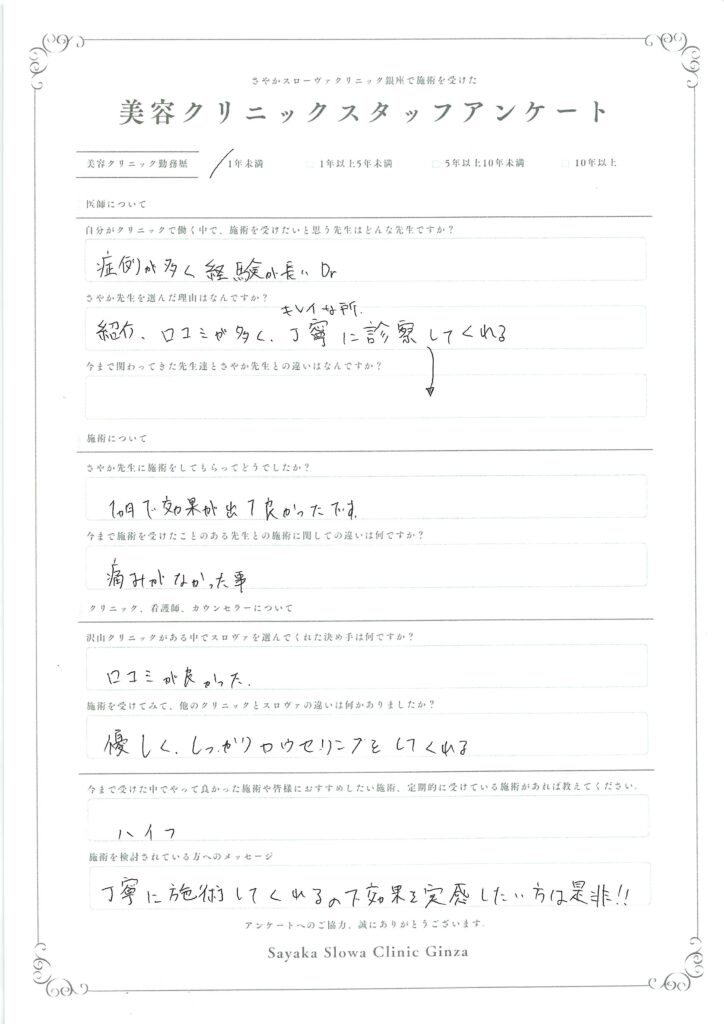 さやかスローヴァクリニック銀座で施術を受けた
美容クリニックスタッフアンケート
美容クリニック勤務歴 1年未満 1年以上5年未満 5年以上10年未満 10年以上
医師について
自分がクリニックで働く中で、施術を受けたいと思う先生はどんな先生ですか？
症例が多く経験が長いDr
さやか先生を選んだ理由はなんですか？
キレイな所.
紹介、口コミが多く、丁寧に診察してくれる
今まで関わってきた先生達とさやか先生との違いはなんですか？
施術について
さやか先生に施術をしてもらってどうでしたか？
1ヶ月で効果が出て良かったです
今まで施術を受けたことのある先生との施術に関しての違いは何ですか？
痛みがなかった事
クリニック、看護師、カウンセラーについて
沢山クリニックがある中でスロヴァを選んでくれた決め手は何ですか？
口コミが良かった.
施術を受けてみて、他のクリニックとスロヴァの違いは何かありましたか？
優しく、しっかりカウセリングをしてくれる
今まで受けた中でやって良かった施術や皆様におすすめしたい施術、定期的に受けている施術があれば教えてください.
ハイフ
施術を検討されている方へのメッセージ
丁寧に施術してくれるので効果を実感したい方は是非!!
アンケートへのご協力、誠にありがとうございます.
Sayaka Slowa Clinic Ginza